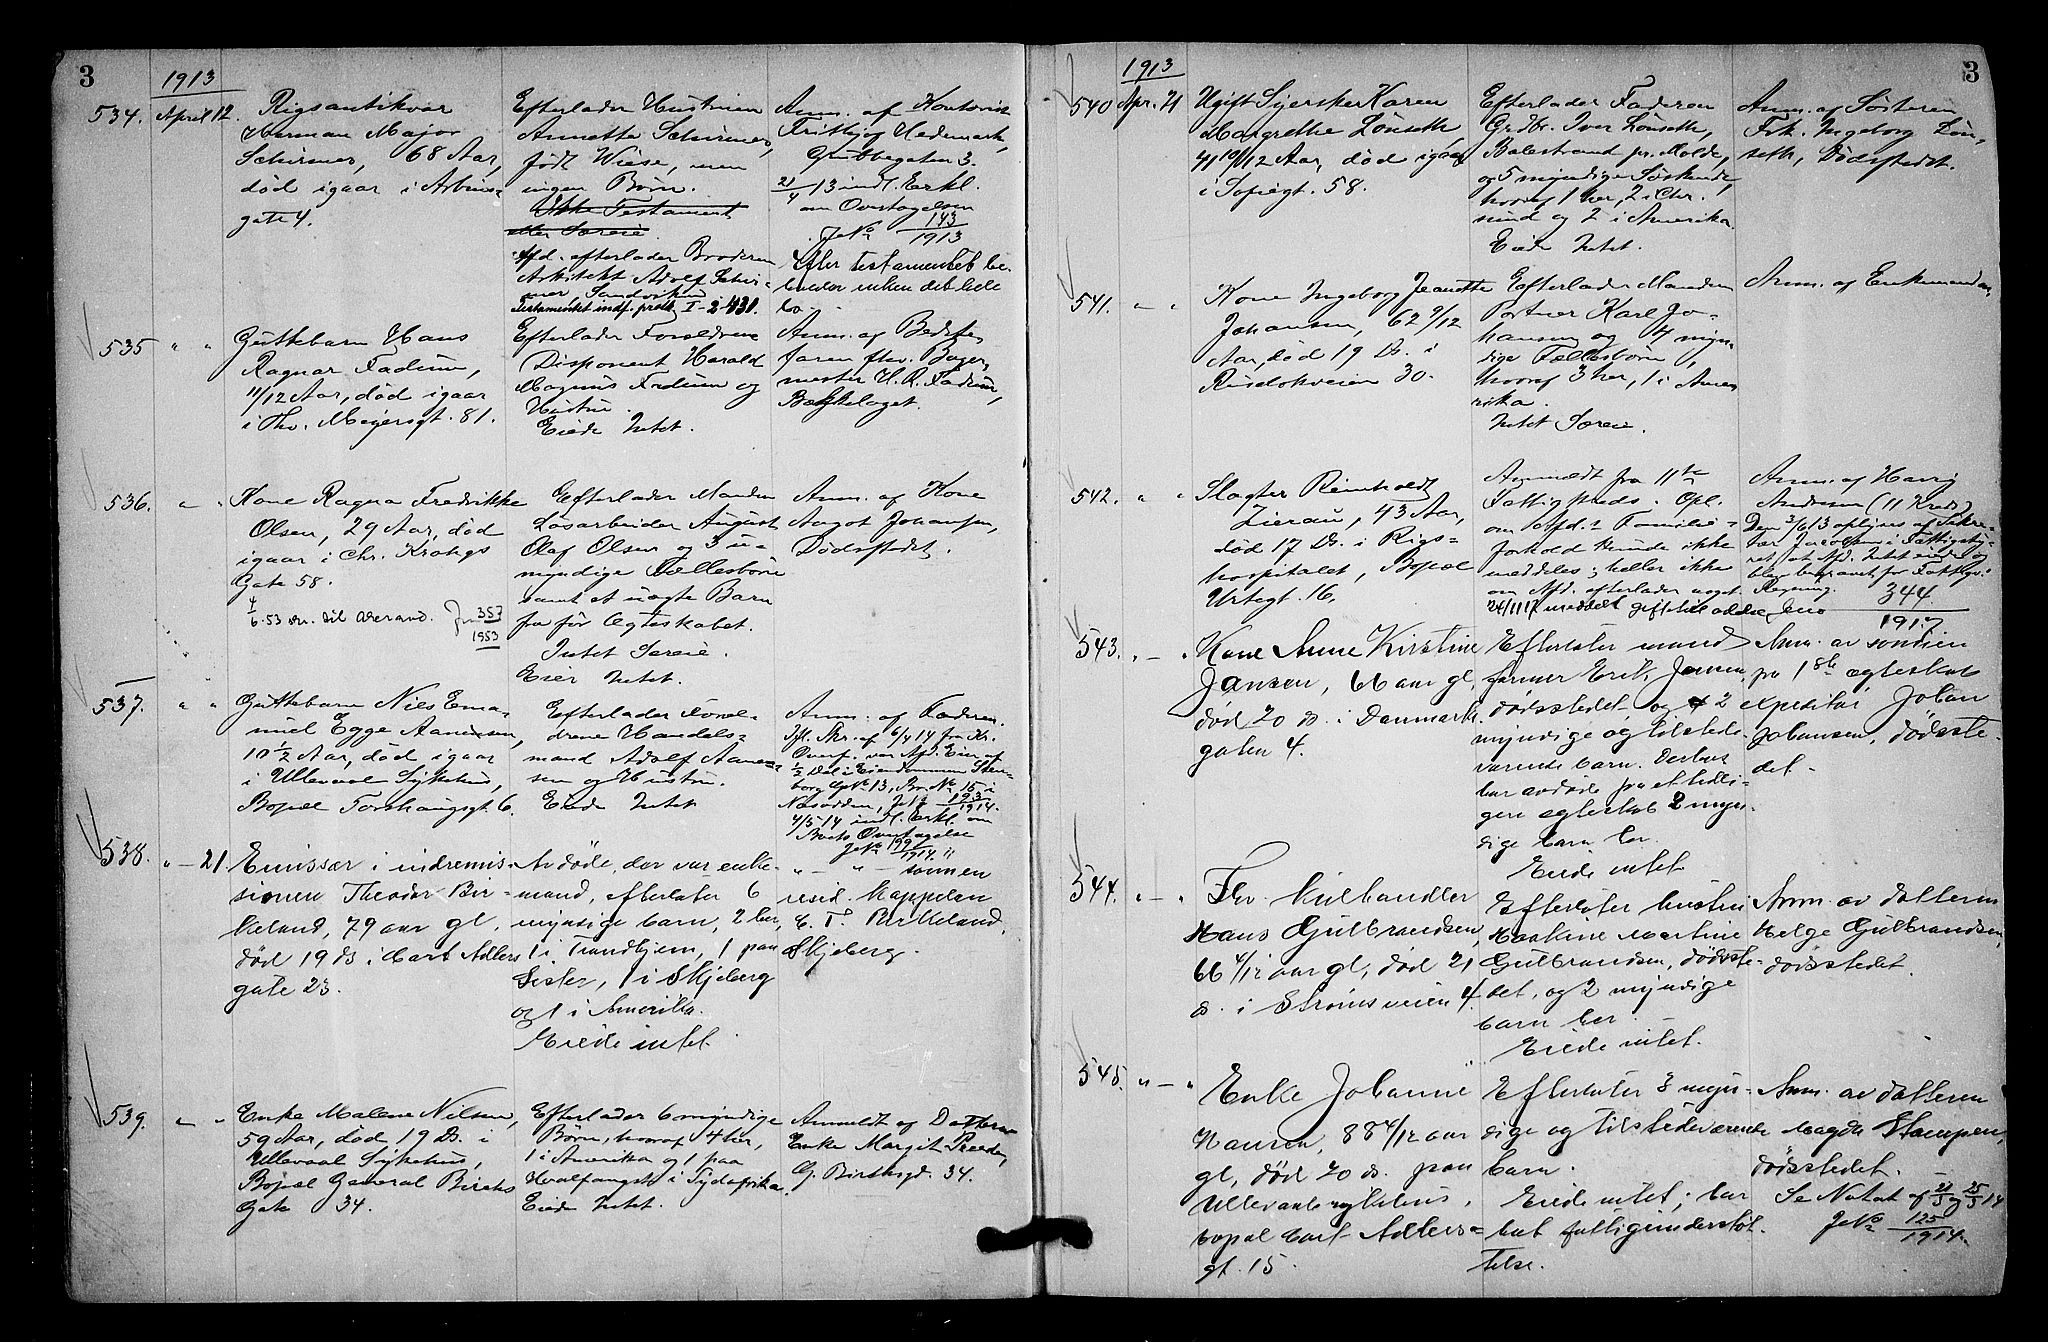 3
1913
534. April 12. Rigsantikvar
Herman Major
Schirmer, 68 Aar,
død igaar i Arbins
gate 4.
Efterlader Hustruen
Annette Schirmer,
født Wiese, men
ingen Børn.
Ikke Testament
eller Særeie.
Afd. efterlader Broderen
Arkitekt Adolf Schir-
mer Sandviken
Testamentet indf. prot. I-2-431.
Anm. af Kontorist
Frithjof Hedemark,
Gubbegaten 3.
21/4 13 indl. Erkl.
om Overtagelsen
JNo 143/1913
Efter testamentet be-
holder enken det hele
bo.
535 " " Guttebarn Hans
Ragnar Fadum,
11/12 Aar, død igaar
i Thv. Meyersgt. 81.
Efterlader Forældrene
Disponent Harald
Magnus Fadum og
Hustru.
Eiede Intet.
Anm. af Bedste-
faren fhv. Bager-
mester H. R. Fadum,
Bækkelaget.
536. " " Kone Ragna Fredrikke
Olsen, 29 Aar, død
igaar i Chr. Krohgs
Gate 58.
Jn 357/1953
Efterlader Manden
Løsarbeider August
Olaf Olsen og 3 u-
myndige Fællesbørn
samt et uægte Barn
fra før Ægteskabet.
Intet Særeie.
Eier Intet.
Anm. af Kone
Aagot Johansen,
Dødsstedet.
537. " " Guttebarn Nils Ema-
nuel Egge Aanesen,
10 1/2 Aar, død igaar
i Ullevaal Sykehus,
Bopæl Torshaugsgt. 6.
Efterlader Foræl-
drene Handels-
mand Adolf Aane-
sen og Hustru.
Eiede Intet
Anm. af Faderen.
Ifl. Skr. af 6/4 14 fra Kr.
Overf. var Afd. Eier af
1/2 Del i Eiendommen Sten-
borg GNo 13, Br. No 15 i
Nesodden, JNo 193/1914.
4/5 14 indl. Erkl. om
Boets Overtagelse
JNo 199/1914.
538. " - 21. Emissær i indremis-
sionen Theodor Bir-
keland, 79 aar gl.
død 19 ds i Cort Adlers
gate 23.
Avdøde, der var enke-
mand, efterlater 6
myndige barn, 2 her,
1 i Trondhjem, 1 paa
Lister, 1 i Skjeberg
og 1 i Amerika.
Eiede intet.
" - " - sønnen
resid. kappelan
E. T. Birkeland,
Skjeberg.
539. " " Enke Malene Nilsen,
59 Aar, død 19 Ds. i
Ullevaal Sykehus,
Bopæl General Birchs
Gate 34.
Efterlader 6 myndige
Børn, hvoraf 4 her,
1 i Amerika og 1 paa
Hvalfangst i Sydafrika.
Eiede Intet.
Anmeldt af Datteren
Enke Margit
G. Birchsgd. 34.
3
1913
540 Apr. 21 Ugift Syerske Karen
Margrethe Lønseth
41 10/12 Aar, død igaar
i Sofiegt. 58.
Efterlader Faderen
Grdbr. Iver Lønseth,
Balestrand pr. Molde,
og 5 myndige Søskende,
hvoraf 1 her, 2 i Chr.
sund og 2 i Amerika
Eiede Intet.
Anm. af Søsteren
Frk. Ingeborg Løn-
seth, Dødsstedet.
541. " " Kone Ingeborg Jeanette
Johansen, 62 9/12
Aar, død 19 Ds. i
Ruseløkveien 30.
Efterlader Manden
Portner Karl Jo-
hansen og 4 myn-
dige Fællesbørn,
hvoraf 3 her, 1 i Ame-
rika.
Intet Særeie.
Anm. af Enkemanden.
542. " " Slagter Reinholdt
Zierau, 43 Aar,
død 17 Ds. i Rigs-
hospitalet, Bopæl
Urtegt. 16,
Anmeldt fra 11te
Fattigkreds. Opl.
om Afd.s Familie-
forhold kunde ikke
meddeles; heller ikke
om Afd. efterlader noget.
Anm. af Harry
Andersen (11 Kreds)
Den 3/6 13 oplyses af Sekre-
tær Jacobsen i Fattigsty-
ret, at Afd. Intet eiede og
blev begravet for Fattigv.
Regning.
344/1917
543. " - " Kone Anne Kirstine
Jansen, 66 aar gl,
død 20 ds. i Danmarks
gaten 4.
Efterlater mand
former Erik Jansen,
dødsstedet, og 2
myndige og tilstede-
værende barn. Desuten
har avdøde fra et tidli-
gere egteskab 2 myn-
dige barn her.
Eiede intet.
Anm. av sønnen
fra 1ste egteskab
expeditør Johan
Johansen, dødsste-
det.
544. " - " Fhv. kulhandler
Hans Gulbrandsen,
66 4/12 aar gl, død 21
ds. i Strømsveien 4.
Efterlater hustru
Maskine Martine
Gulbrandsen, dødsste-
det, og 2 myndige
barn her.
Eiede intet.
Anm. av datteren
Helge Gulbrandsen,
dødsstedet.
545. " - " Enke Johanne
Hansen, 88 4/12 aar
gl, død 20 ds. paa
Ullevaals sykehus,
bopæl Cort Adlers-
gt. 15.
Efterlater 3 myn-
dige og tilstedeværende
barn.
Eiede intet; har
hat fattigunderstøt-
telse.
Anm. av datteren
Magda Stampen,
dødsstedet.
Se Notat af 21/5 og 25/5 14
JNo 125/1914.